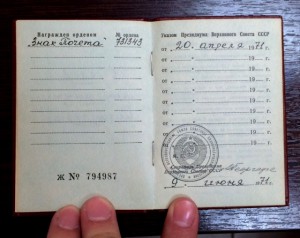 Награжден орденом
№ ордена
"Знак Почета"
Ж № 794987
Указом Президиума Верховного Совета СССР
от 20. апреля 1971г.
от 19 г.
от 19 г.
от 19 г.
от 19 г.
от 19 г.
от 19 г.
от 19 г.
Секретарь Президиума
Верховного Совета
9. июня 1971г.